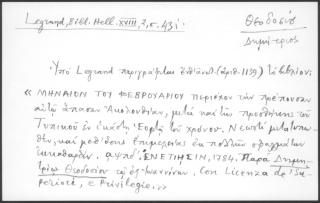 Legrand, Bibl. Hell. XVIII, 2, σ. 431.
Θεοδοσίῳ
Δημήτριος
Ὑπὸ Legrand περιγράφεται (ἀριθ. 1139) τὸ ἑξῆς βιβλίον:
« ΜΗΝΑΙΟΝ ΤΟΥ ΦΕΒΡΟΥΑΡΙΟΥ περιέχον τὴν πρέπουσαν
αὐτῷ ἅπασαν Ἀκολουθίαν, μετὰ καὶ τῆς προσθήκης τοῦ
Τυπικοῦ ἐν ἑκάστῃ Ἑορτῇ τοῦ χρόνου. Νεωστὶ μετατυπω-
θέν, καὶ μεθ' ὅσης ἐπιμελείας ἐκ πολλῶν σφαλμάτων
ἐκκαθαρθέν. αψπδ'. ΕΝΕΤΙΗΣΙΝ, 1784. Παρὰ Δημη-
τρίῳ Θεοδοσίου τῷ ἐξ Ἰωαννίνων. Con Licenza de' Su-
periori, e Privilegio. »